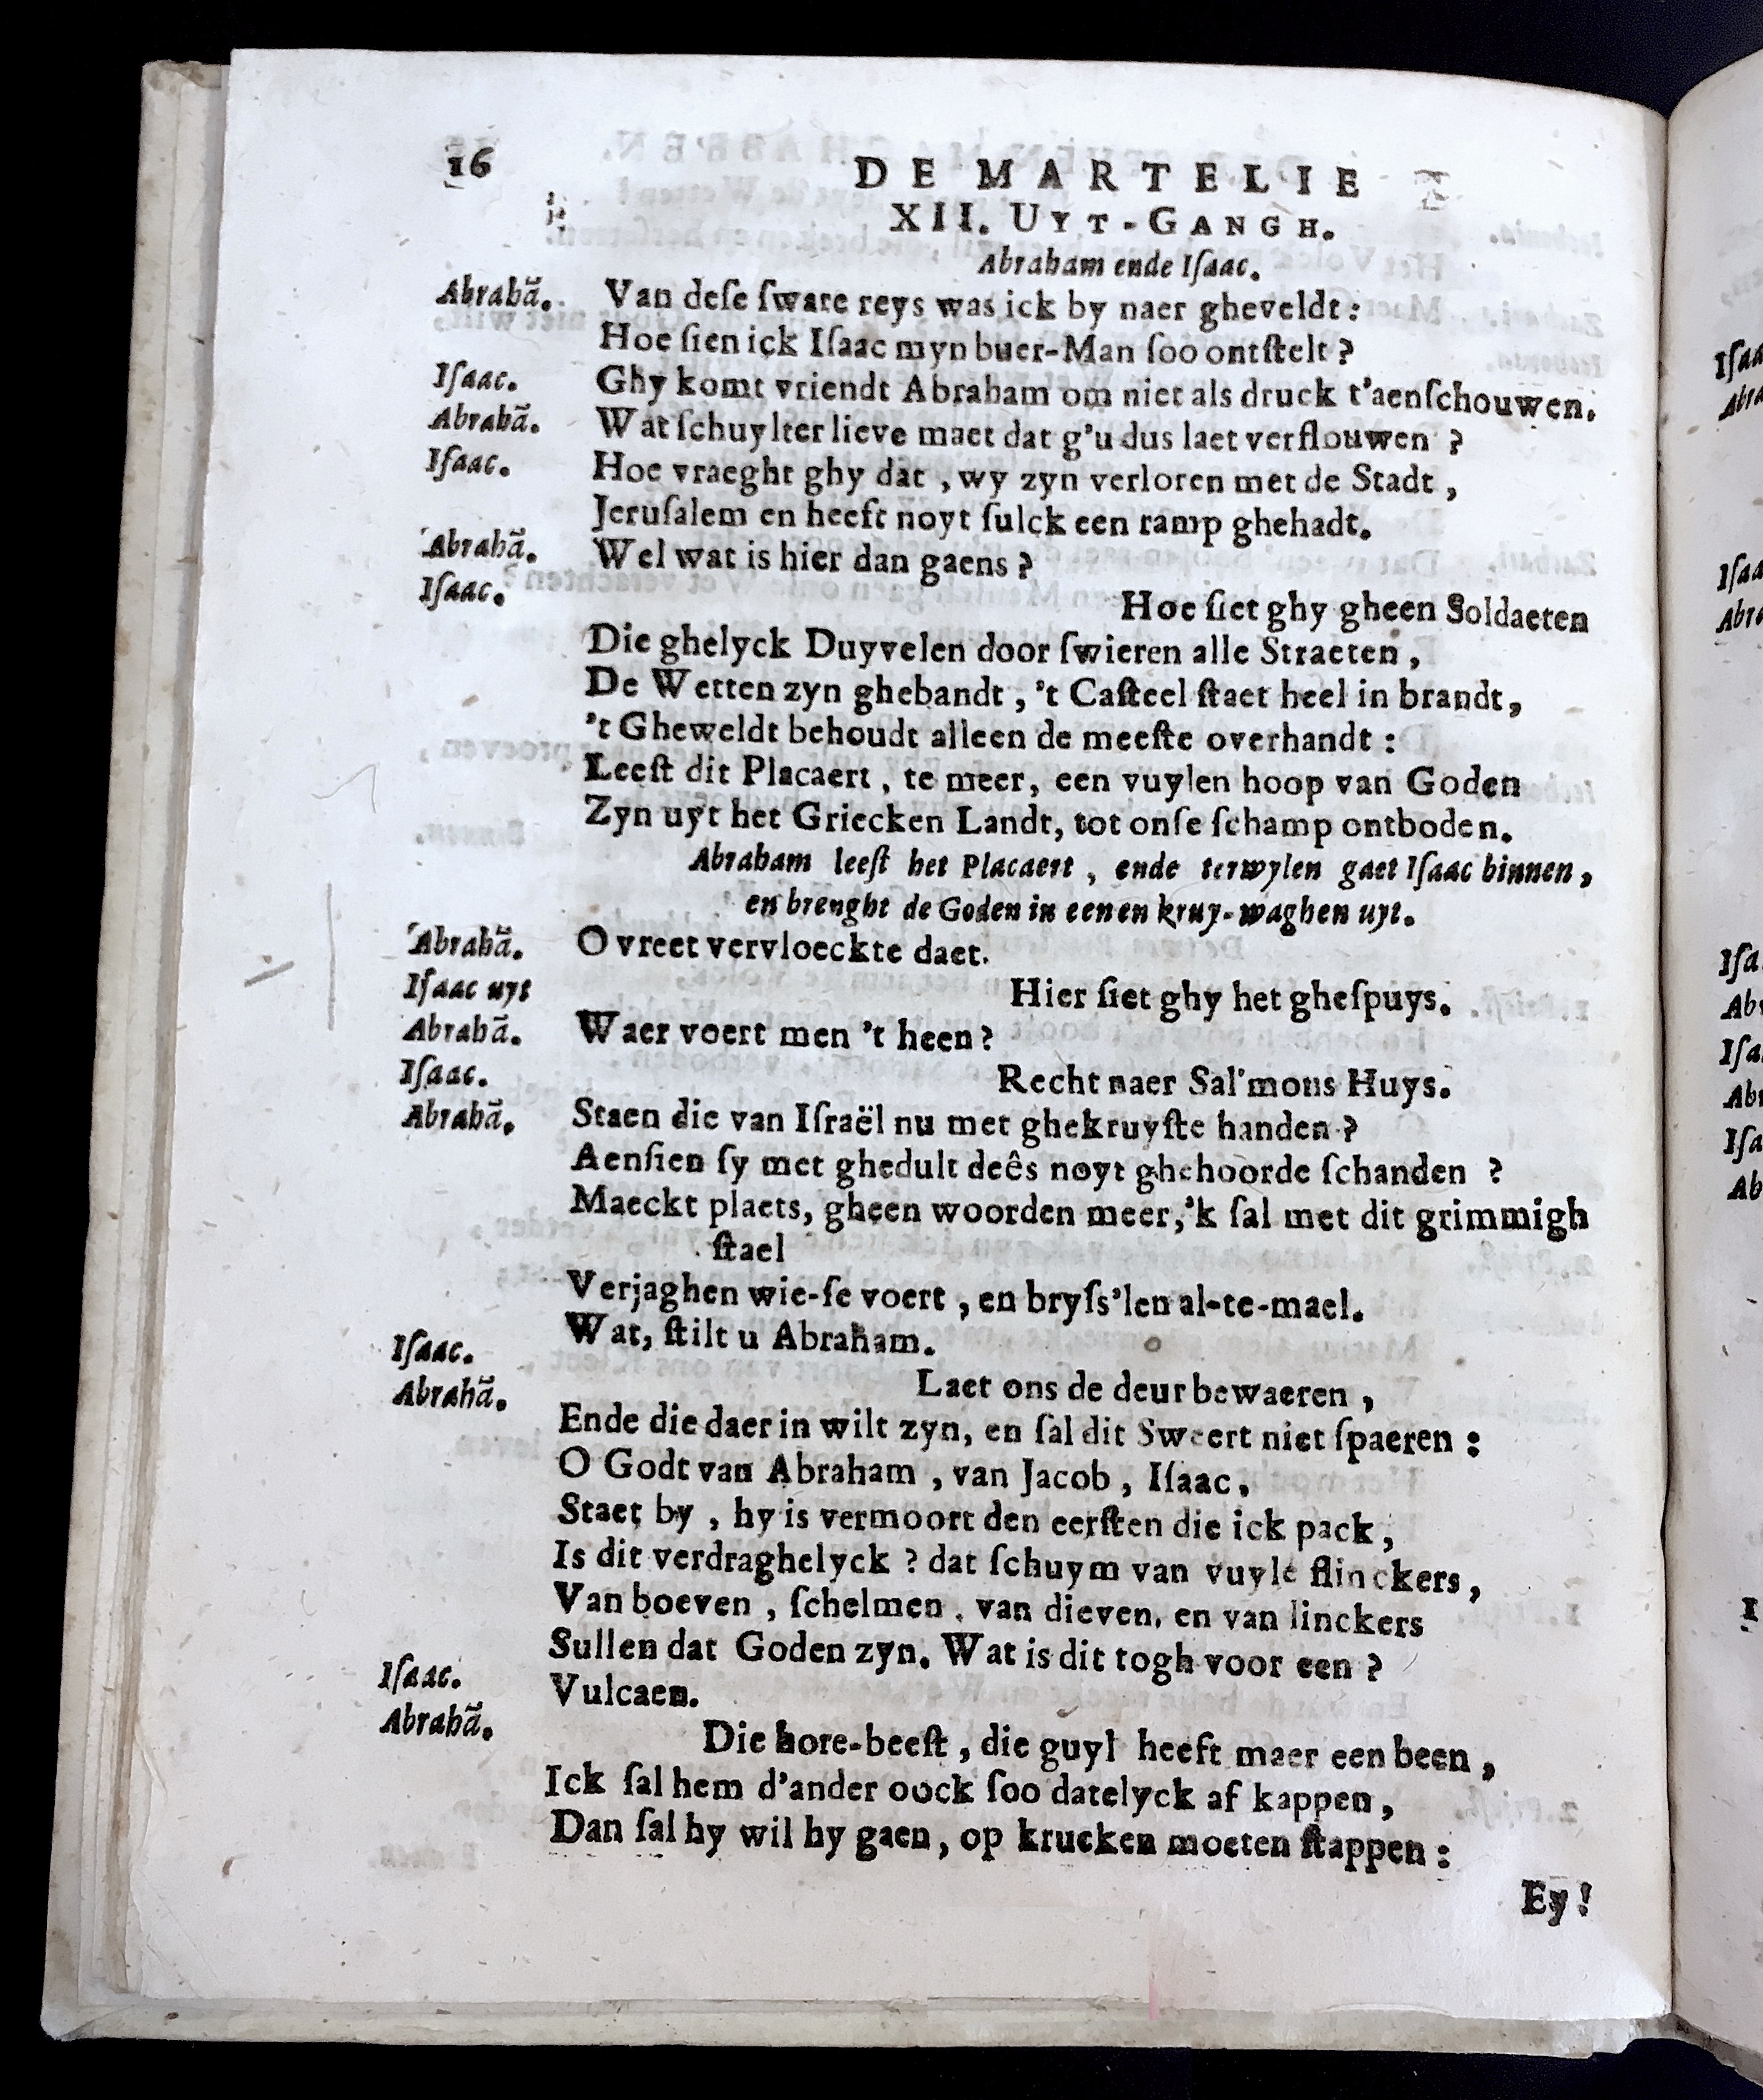 16
DE MARTELIE
XII. UYT-GANGH.
Abraham ende Iſaac.
Abrahā. Van deſe ſware reys was ick by naer gheveldt :
Hoe ſien ick Iſaac myn buer-Man ſoo ontſtelt ?
Iſaac. Ghy komt vriendt Abraham om niet als druck t'aenſchouwen.
Abrahā. Wat ſchuylter lieve maet dat g'u dus laet verflouwen ?
Iſaac. Hoe vraeght ghy dat , wy zyn verloren met de Stadt ,
Jeruſalem en heeft noyt ſulck een ramp ghehadt.
Abrahā. Wel wat is hier dan gaens ?
Iſaac. Hoe ſiet ghy gheen Soldaeten
Die ghelyck Duyvelen door ſwieren alle Straeten ,
De Wetten zyn ghebandt , 't Caſteel ſtaet heel in brandt ,
't Gheweldt behoudt alleen de meeſte overhandt :
Leeſt dit Placaert , te meer, een vuylen hoop van Goden
Zyn uyt het Griecken Landt, tot onſe ſchamp ontboden.
Abraham leeſt het Placaert , ende terwylen gaet Iſaac binnen ,
en brenght de Goden in eenen kruy-waghen uyt.
Abrahā. O vreet vervloeckte daet.
Iſaac uyt Hier ſiet ghy het gheſpuys.
Abrahā. Waer voert men 't heen ?
Iſaac. Recht naer Sal'mons Huys.
Abrahā. Staen die van Iſraël nu met ghekruyſte handen ?
Aenſien ſy met ghedult deês noyt ghehoorde ſchanden ?
Maeckt plaets, gheen woorden meer,'k ſal met dit grimmigh
ſtael
Verjaghen wie-ſe voert , en bryſs'len al-te-mael.
Iſaac. Wat, ſtilt u Abraham.
Abrahā. Laet ons de deur bewaeren ,
Ende die daer in wilt zyn, en ſal dit Sweert niet ſpaeren :
O Godt van Abraham , van Jacob , Iſaac ,
Staet by , hy is vermoort den eerſten die ick pack ,
Is dit verdraghelyck ? dat ſchuym van vuyle flinckers ,
Van boeven , ſchelmen , van dieven, en van linckers
Sullen dat Goden zyn. Wat is dit togh voor een ?
Iſaac. Vulcaen.
Abrahā. Die hore-beeſt , die guyl heeft maer een been ,
Ick ſal hem d'ander oock ſoo datelyck af kappen ,
Dan ſal hy wil hy gaen , op krucken moeten ſtappen :
Ey !